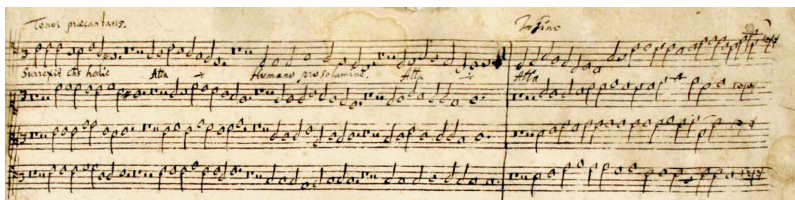 Tenor præcantans.
In fine
Surrexit Chs hodie Alla Humano pro solamine. Alla Alla